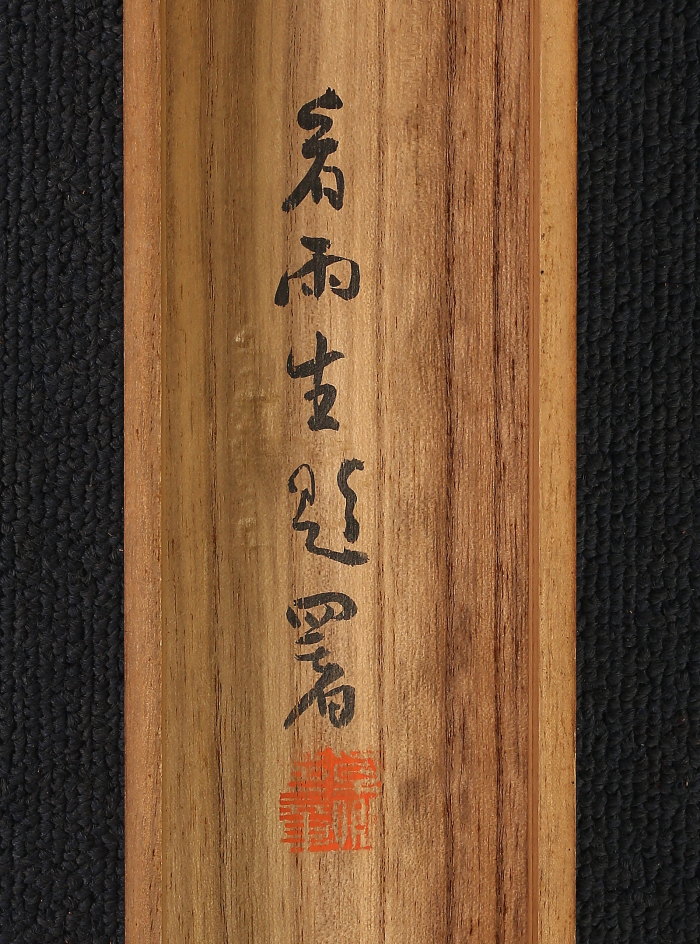 看雨生題署